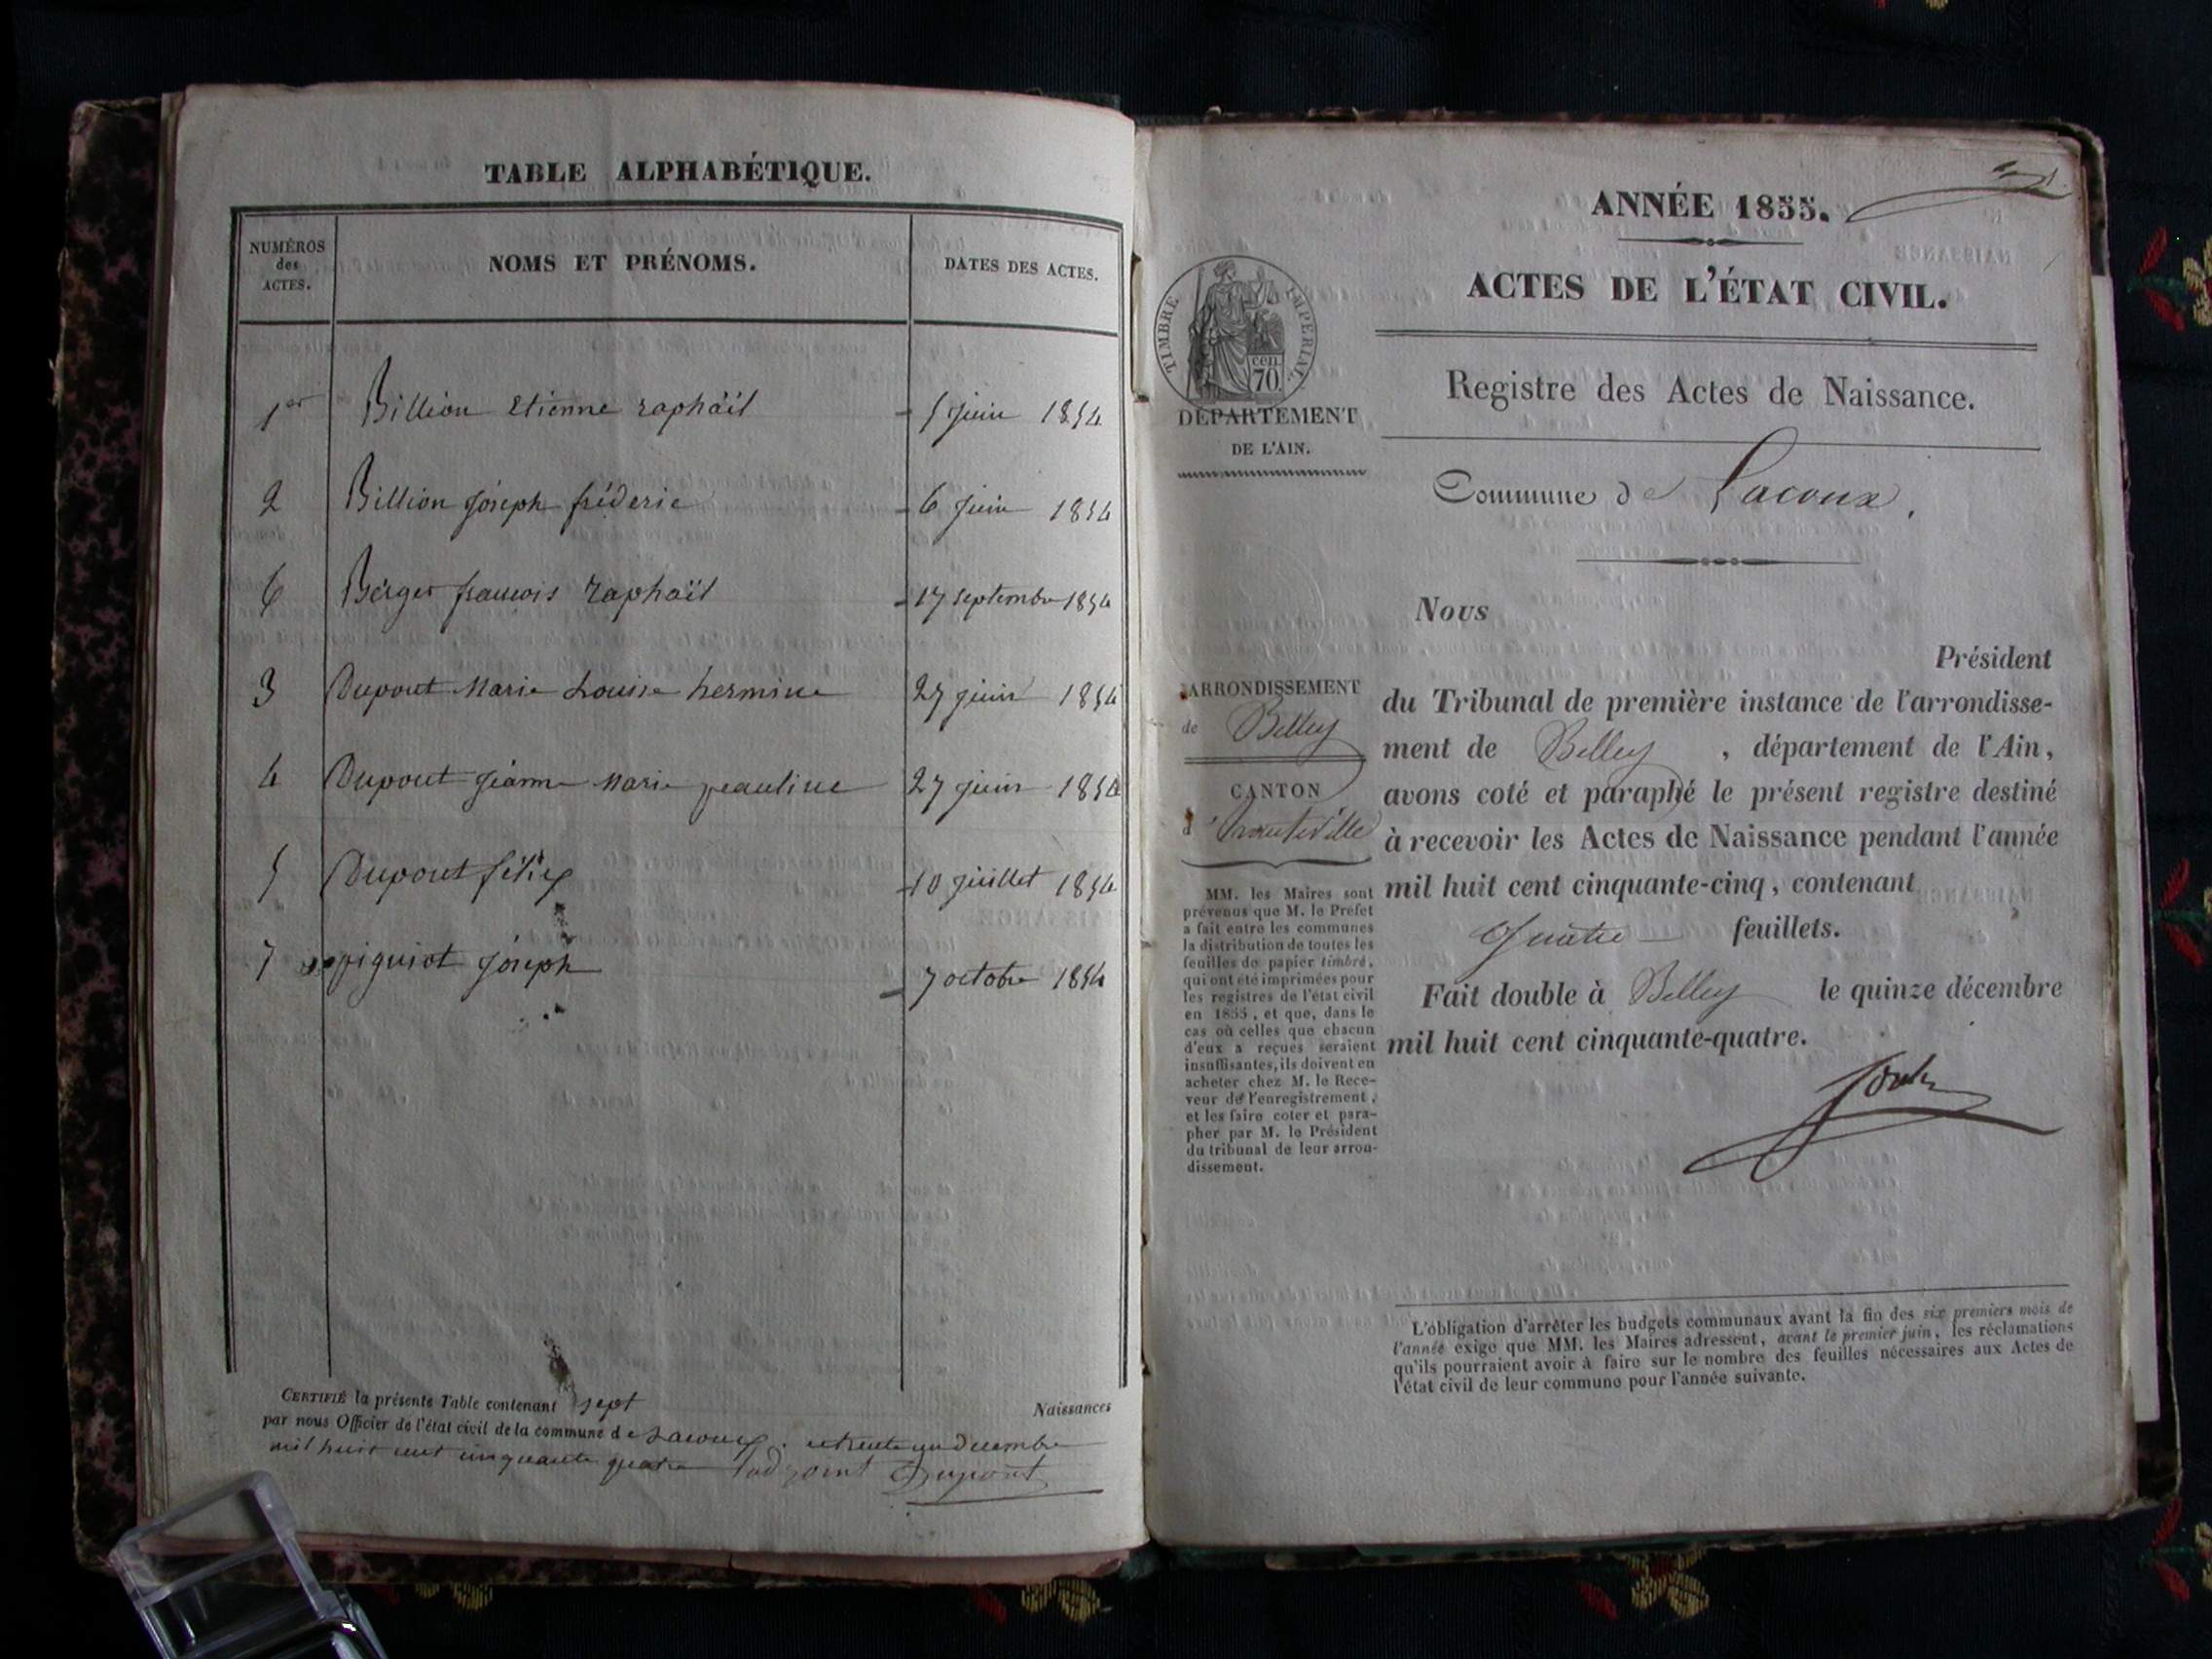 TABLE ALPHABÉTIQUE.
NUMÉROS des ACTES. NOMS ET PRÉNOMS. DATES DES ACTES.
1er Billion Etienne raphäil 5 juin 1854
2 Billion joseph fréderic 6 juin 1854
6 Berger francois raphaïl 17 septembre 1854
3 Dupont Marie Louise hermine 27 juin 1854
4 Dupont jéanne Marie peauline 27 juin 1854
5 Dupont félix 10 juillet 1854
7 piguiot joseph 7 octobre 1854
CERTIFIÉ la présente Table contenant sept Naissances
par nous Officier de l'état civil de la commune de Lacoux. trente un decembre
mil huit cent cinquante quatre Dupont
ANNÉE 1855.
ACTES DE L'ÉTAT CIVIL.
TIMBRE IMPERIAL
cen.
70.
DÉPARTEMENT
DE L'AIN.
Registre des Actes de Naissance.
Commune de Lacoux.
ARRONDISSEMENT
de Belley
CANTON
d'hauteville
MM. les Maires sont
prévenus que M. le Préfet
a fait entre les communes
la distribution de toutes les
feuilles de papier timbré,
qui ont été imprimées pour
les registres de l'état civil
en 1855, et que, dans le
cas où celles que chacun
d'eux a reçues seraient
insuffisantes, ils doivent en
acheter chez M. le Rece-
veur de l'enregistrement,
et les faire coter et para-
pher par M. le Président
du tribunal de leur arron-
dissement.
Nous
Président
du Tribunal de première instance de l'arrondisse-
ment de Belley, département de l'Ain,
avons coté et paraphé le présent registre destiné
à recevoir les Actes de Naissance pendant l'année
mil huit cent cinquante-cinq, contenant
Quatre feuillets.
Fait double à Belley le quinze décembre
mil huit cent cinquante-quatre.
L'obligation d'arrêter les budgets communaux avant la fin des six premiers mois de
l'année exige que MM. les Maires adressent, avant le premier juin, les réclamations
qu'ils pourraient avoir à faire sur le nombre des feuilles nécessaires aux Actes de
l'état civil de leur commune pour l'année suivante.